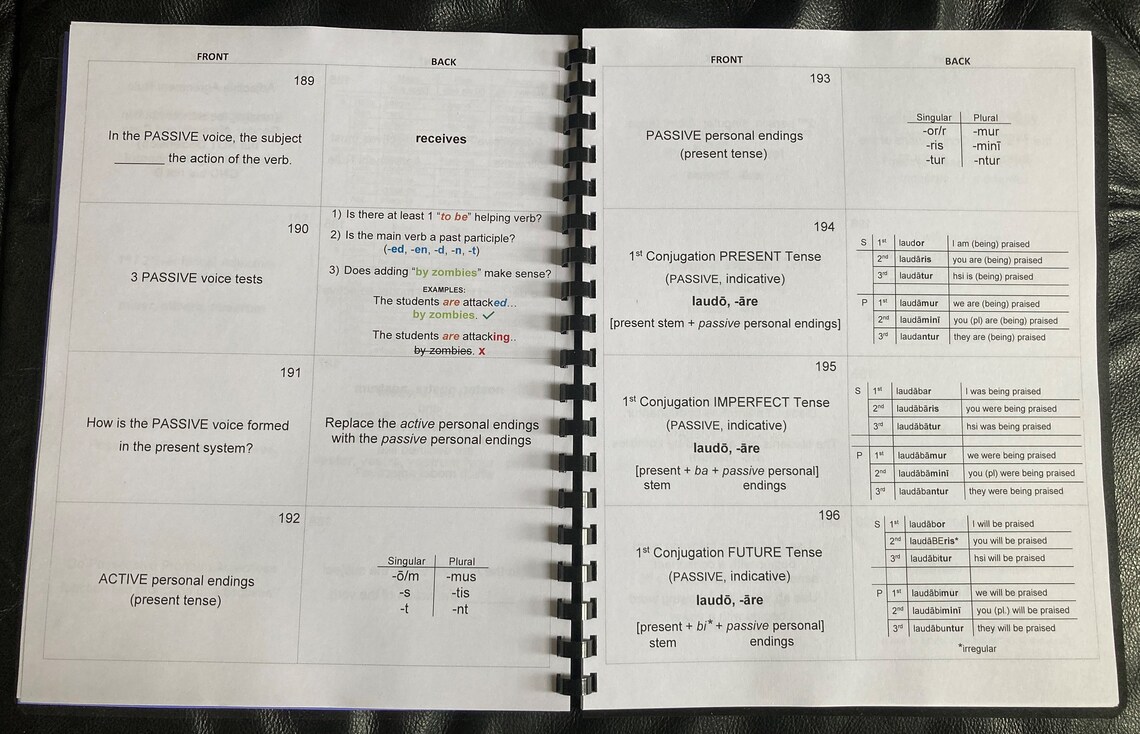 FRONT
BACK
189
In the PASSIVE voice, the subject
_______ the action of the verb.
receives
190
3 PASSIVE voice tests
1) Is there at least 1 "to be" helping verb?
2) Is the main verb a past participle?
(-ed, -en, -d, -n, -t)
3) Does adding "by zombies" make sense?
EXAMPLES:
The students are attacked...
by zombies. ✓
The students are attacking..
by zombies. x
191
How is the PASSIVE voice formed
in the present system?
Replace the active personal endings
with the passive personal endings
192
ACTIVE personal endings
(present tense)
Singular Plural
-ō/m -mus
-s -tis
-t -nt
FRONT
BACK
193
PASSIVE personal endings
(present tense)
Singular Plural
-or/r -mur
-ris -minī
-tur -ntur
194
1st Conjugation PRESENT Tense
(PASSIVE, indicative)
laudō, -āre
[present stem + passive personal endings]
S 1st laudor I am (being) praised
2nd laudāris you are (being) praised
3rd laudātur hsi is (being) praised
P 1st laudāmur we are (being) praised
2nd laudāminī you (pl) are (being) praised
3rd laudantur they are (being) praised
195
1st Conjugation IMPERFECT Tense
(PASSIVE, indicative)
laudō, -āre
[present + ba + passive personal]
stem endings
S 1st laudābar I was being praised
2nd laudābāris you were being praised
3rd laudābātur hsi was being praised
P 1st laudābāmur we were being praised
2nd laudābāminī you (pl) were being praised
3rd laudābantur they were being praised
196
1st Conjugation FUTURE Tense
(PASSIVE, indicative)
laudō, -āre
[present + bi* + passive personal]
stem endings
S 1st laudābor I will be praised
2nd laudāBEris* you will be praised
3rd laudābitur hsi will be praised
P 1st laudābimur we will be praised
2nd laudābiminī you (pl.) will be praised
3rd laudābuntur they will be praised
*irregular